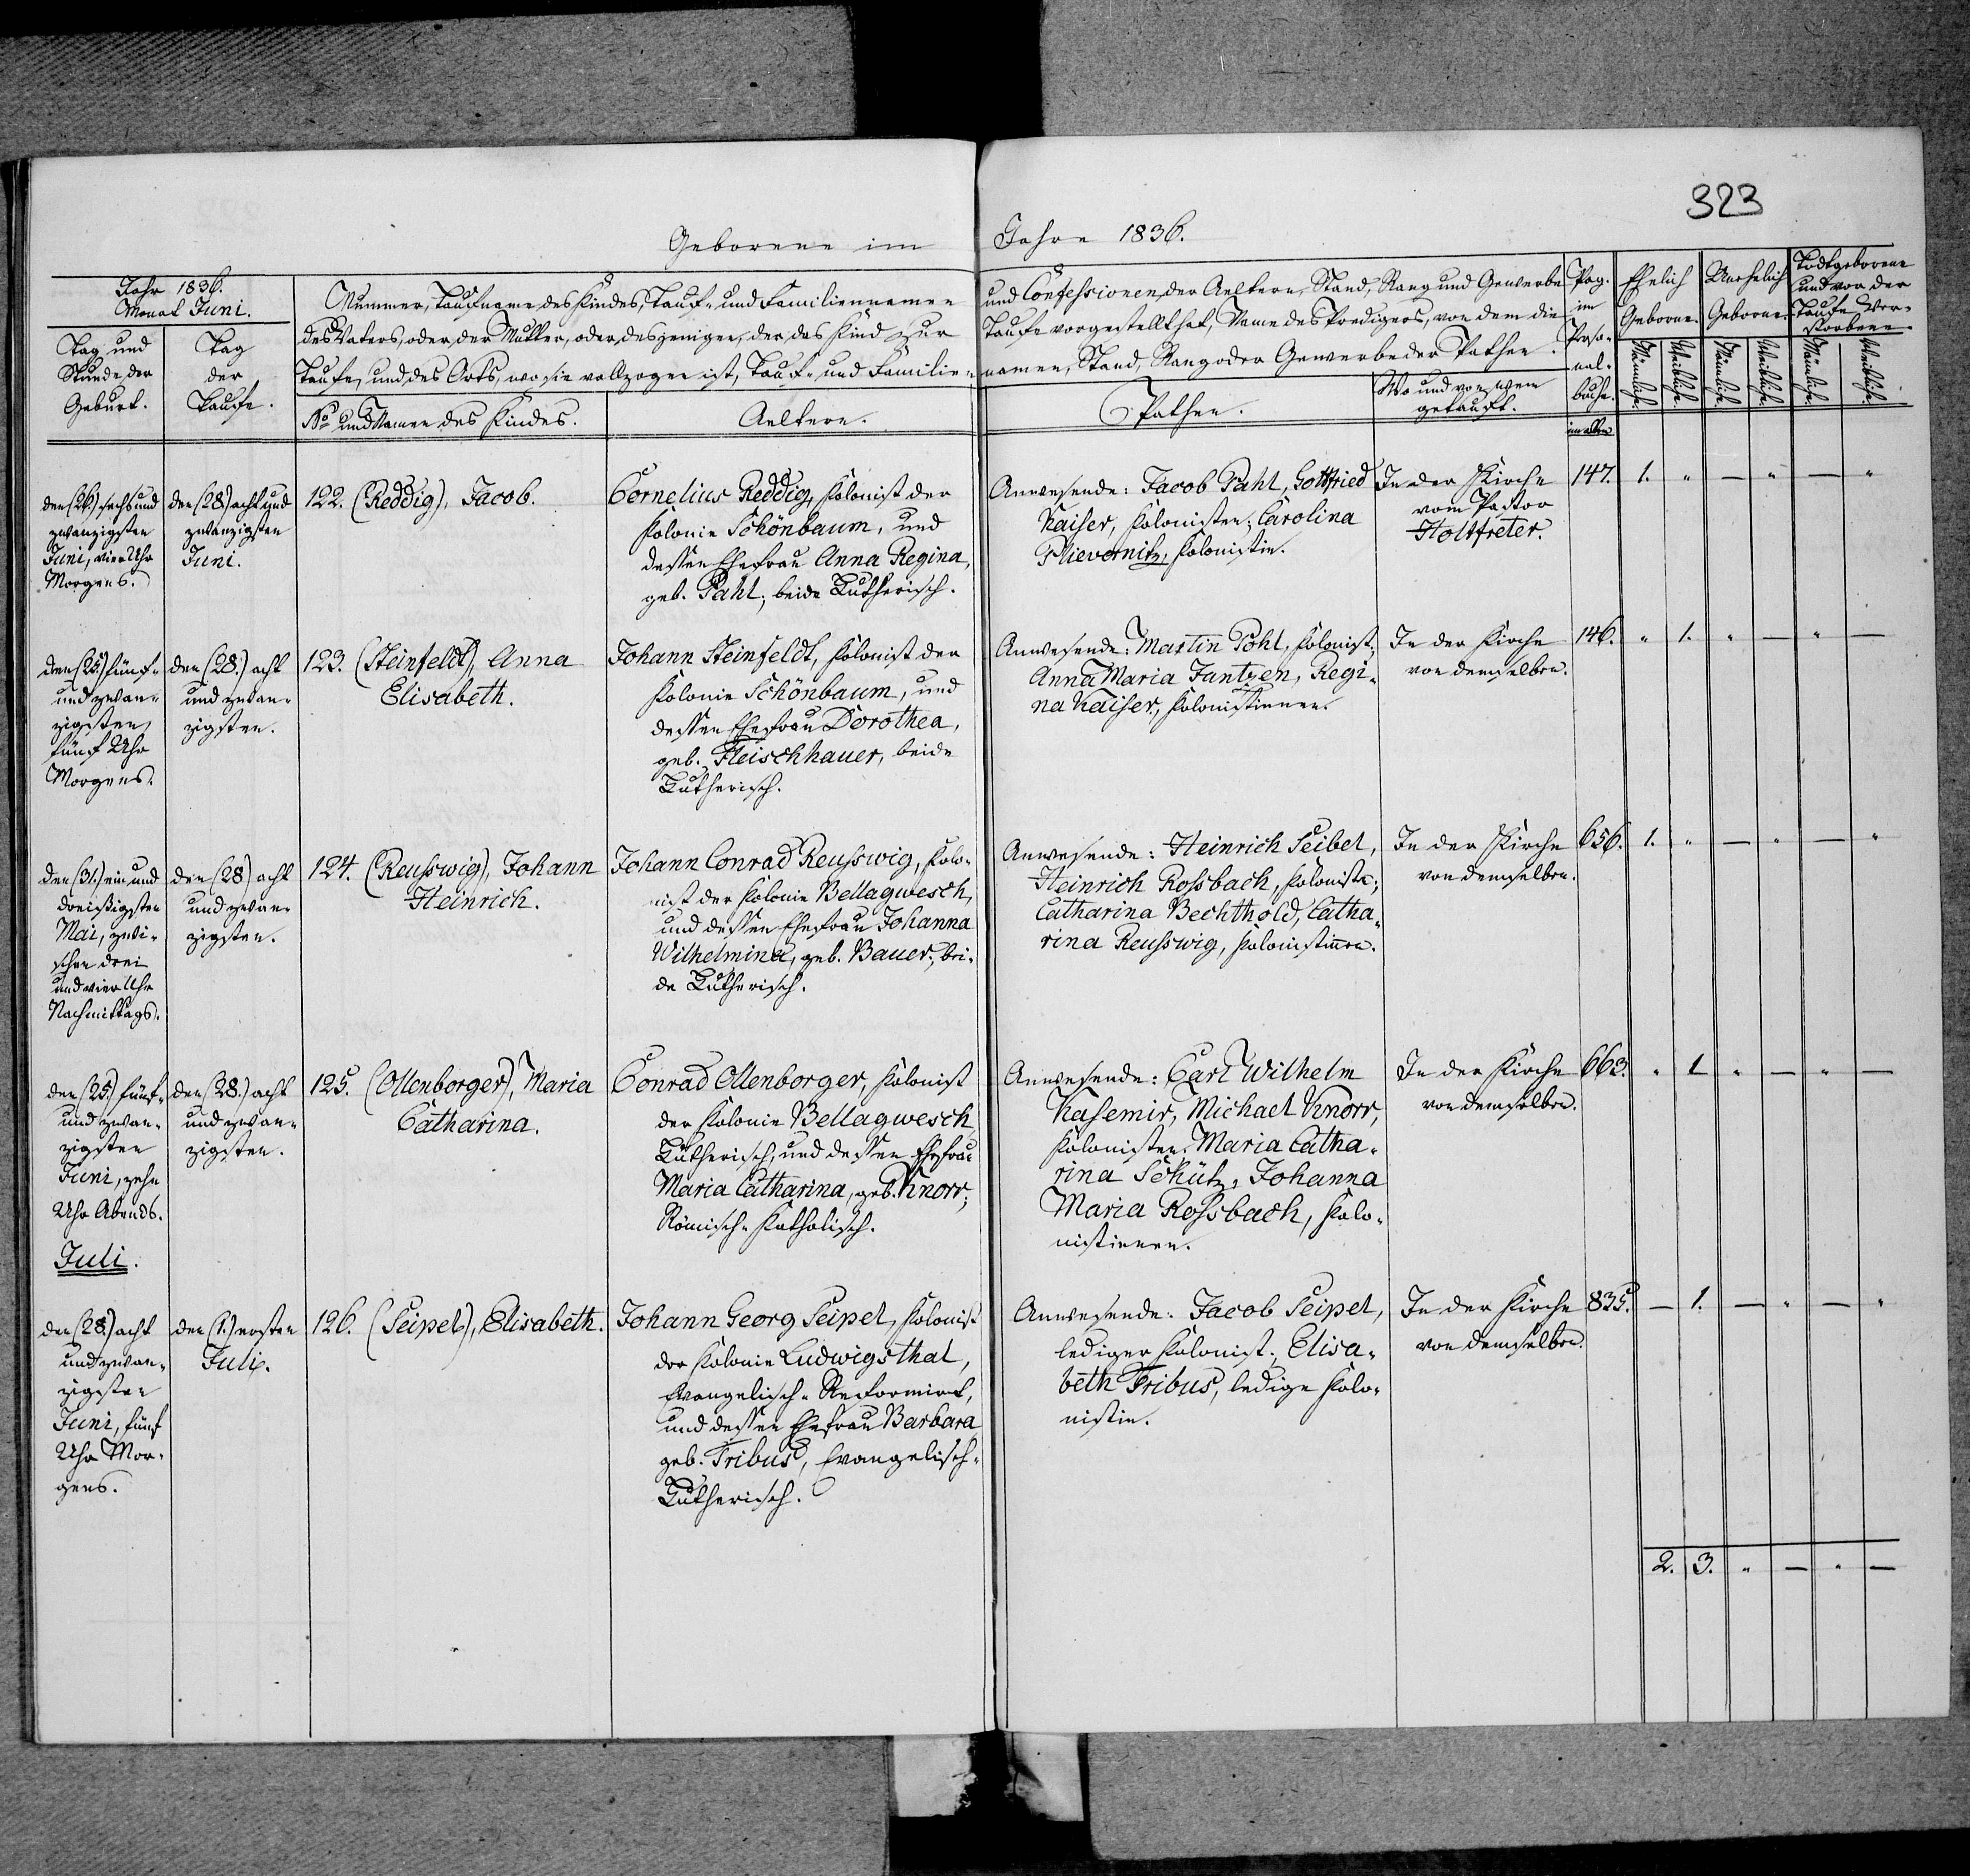 323
Geborene im Jahre 1836.
Jahr 1836.
Monat Juni.
Tag und
Stunde der
Geburt.
Tag
der
Taufe.
Nummer, Taufname des Kindes, Tauf- und Familiennamen
des Vaters, oder der Mutter, oder desjenigen, der das Kind zur
Taufe, und des Orts, wo sie vollzogen ist, Tauf- und Familien-
No und Namen des Kindes.
Aeltern.
und Confessionen, der Aeltern, Stand, Rang und Gewerbe
Taufe vorgestellt hat, Name des Predigers, von dem die
namen, Stand, Rang oder Gewerbe der Pathen.
Pathen.
Wo und von wem
getauft.
Pag.
im
Perso-
nal-
buche.
im alten
Ehelich
Geborne.
Unehelich
Geborne.
Todtgeborene
und vor der
Taufe Ver-
storbene.
Männliche.
Weibliche.
Männliche.
Weibliche.
Männliche.
Weibliche.
den (26.) sechs und
zwanzigsten
Juni, vier Uhr
Morgens.
den (28.) acht und
zwanzigsten
Juni.
122. (Reddig), Jacob.
Cornelius Reddig, Kolonist der
Kolonie Schönbaum, und
dessen Ehefrau Anna Regina,
geb. Pahl; beide Lutherisch.
Anwesende: Jacob Pahl, Gottfried
Kaiser, Kolonisten; Carolina
Plievernitz, Kolonistin.
In der Kirche
vom Pastor
Holtfreter.
147. 1. " — " — "
den (25.) fünf-
und zwan-
zigsten,
fünf Uhr
Morgens.
den (28.) acht
und zwan-
zigsten.
123. (Steinfeldt), Anna
Elisabeth.
Johann Steinfeldt, Kolonist der
Kolonie Schönbaum, und
dessen Ehefrau Dorothea,
geb. Fleischhauer, beide
Lutherisch.
Anwesende: Martin Pohl, Kolonist;
Anna Maria Jantzen, Regi-
na Kaiser, Kolonistinnen.
In der Kirche
von demselben.
146. " 1. " — " —
den (31.) ein und
dreißigsten
Mai, zwi-
schen drei
und vier Uhr
Nachmittags.
den (28) acht
und zwan-
zigsten.
124. (Reusswig), Johann
Heinrich.
Johann Conrad Reusswig, Kolo-
nist der Kolonie Bellagwesch,
und dessen Ehefrau Johanna
Wilhelmina, geb. Bauer, bei-
de Lutherisch.
Anwesende: Heinrich Seibel,
Heinrich Rossbach, Kolonisten;
Catharina Bechthold, Catha-
rina Reusswig, Kolonistinen.
In der Kirche
von demselben.
656. 1. " — " — "
den (25.) fünf-
und zwan-
zigsten
Juni, zehn
Uhr Abends.
den (28.) acht
und zwan-
zigsten.
125. (Ollenborger), Maria
Catharina.
Conrad Ollenborger, Kolonist
der Kolonie Bellagwesch
Lutherisch, und dessen Ehefrau
Maria Catharina, geb. Knorr;
Römisch-Katholisch.
Anwesende: Carl Wilhelm
Kasemir, Michael Knorr,
Kolonisten. Maria Catha-
rina Schütz, Johanna
Maria Rossbach, Kolo-
nistinnen.
In der Kirche
von demselben.
663. " 1 " — " —
Juli.
den (28.) acht
und zwan-
zigsten
Juni, fünf
Uhr Mor-
gens.
den (1.) ersten
Juli.
126. (Seipel), Elisabeth.
Johann Georg Seipel, Kolonist
der Kolonie Ludwigsthal,
Evangelisch-Reformirt,
und dessen Ehefrau Barbara
geb. Tribus, Evangelisch-
Lutherisch.
Anwesende: Jacob Seipel,
lediger Kolonist; Elisa-
beth Tribus, ledige Kolo-
nistin.
In der Kirche
von demselben.
835. — 1. — " — "
2. 3. " — " —